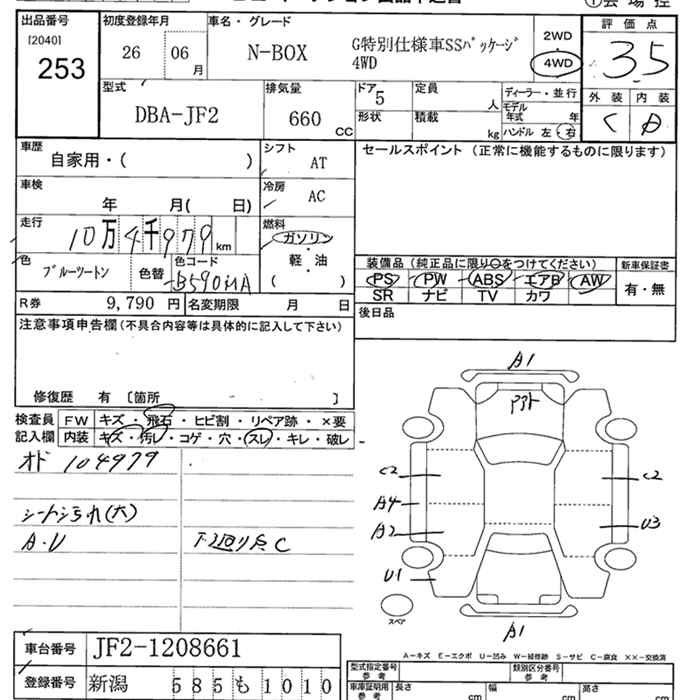 出品番号
[2040]
253
初度登録年月
26 06 月
車名・グレード
N-BOX G特別仕様車SSパッケージ
4WD
2WD
4WD
評価点
3.5
外装 内装
C D
型式
DBA-JF2
排気量
660 CC
ドア
5
形状
定員
人
積載
kg
ディーラー・並行
モデル
年式 年
ハンドル 左・右
車歴
自家用・( )
シフト
AT
車検
年 月( 日)
冷房
AC
走行
10万4千979 km
燃料
ガソリン
軽・油
( )
色
ブルーツートン
色替
色コード
B590MA
R券 9,790 円
名変期限 月 日
セールスポイント (正常に機能するものに限ります)
装備品(純正品に限り〇をつけてください)
PS PW ABS エアB AW
SR ナビ TV カワ
新車保証書
有・無
後日品
注意事項申告欄(不具合内容等は具体的に記入して下さい)
修復歴 有 〔箇所 〕
検査員
記入欄
FW キズ・飛石・ヒビ割・リペア跡・×要
内装 キズ・汚レ・コゲ・穴・スレ・キレ・破レ
オド 104979
シートシミ汚れ(大)
A・U
下廻りサビC
A1
C2
A4
A2
U1
C2
U3
A1
スペア
A-キズ E-エクボ U-凹み W-補修跡 S-サビ C-腐食 ××-交換済
車台番号 JF2-1208661
登録番号 新潟 585も1010
型式指定番号
参考
類別区分番号
参考
車庫証明用
参考
長さ cm
幅 cm
高さ cm